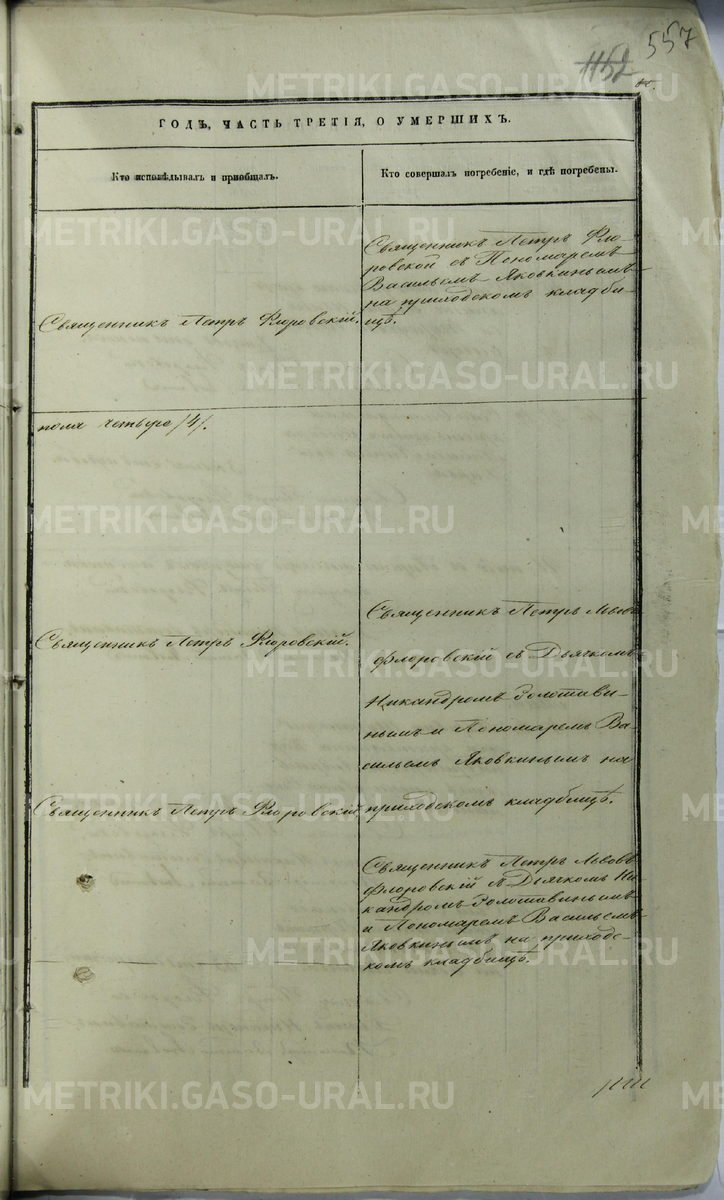 557
1152
ГОДЪ, ЧАСТЬ ТРЕТІЯ, О УМЕРШИХЪ.
Кто исповѣдывалъ и приобщалъ.
Кто совершалъ погребеніе, и гдѣ погребены.
Священникъ Петръ Флоровскій.
Священникъ Петръ Фло-
ровской съ Пономаремъ
Васильемъ Яковкинымъ
на приходскомъ кладби-
щѣ.
пола четыре /4/.
Священникъ Петръ Флоровскій.
Священникъ Петръ Львовъ
Флоровскій съ Дьячкомъ
Никандромъ Золотави-
нымъ и Пономаремъ Ва-
сильемъ Яковкинымъ на
приходскомъ кладбищѣ.
Священникъ Петръ Флоровскій
Священникъ Петръ Львовъ
Флоровскій съ Дьячкомъ Ни-
кандромъ Золотавинымъ
и Пономаремъ Васильемъ
Яковкинымъ на приходс-
комъ кладбищѣ.
METRIKI.GASO-URAL.RU